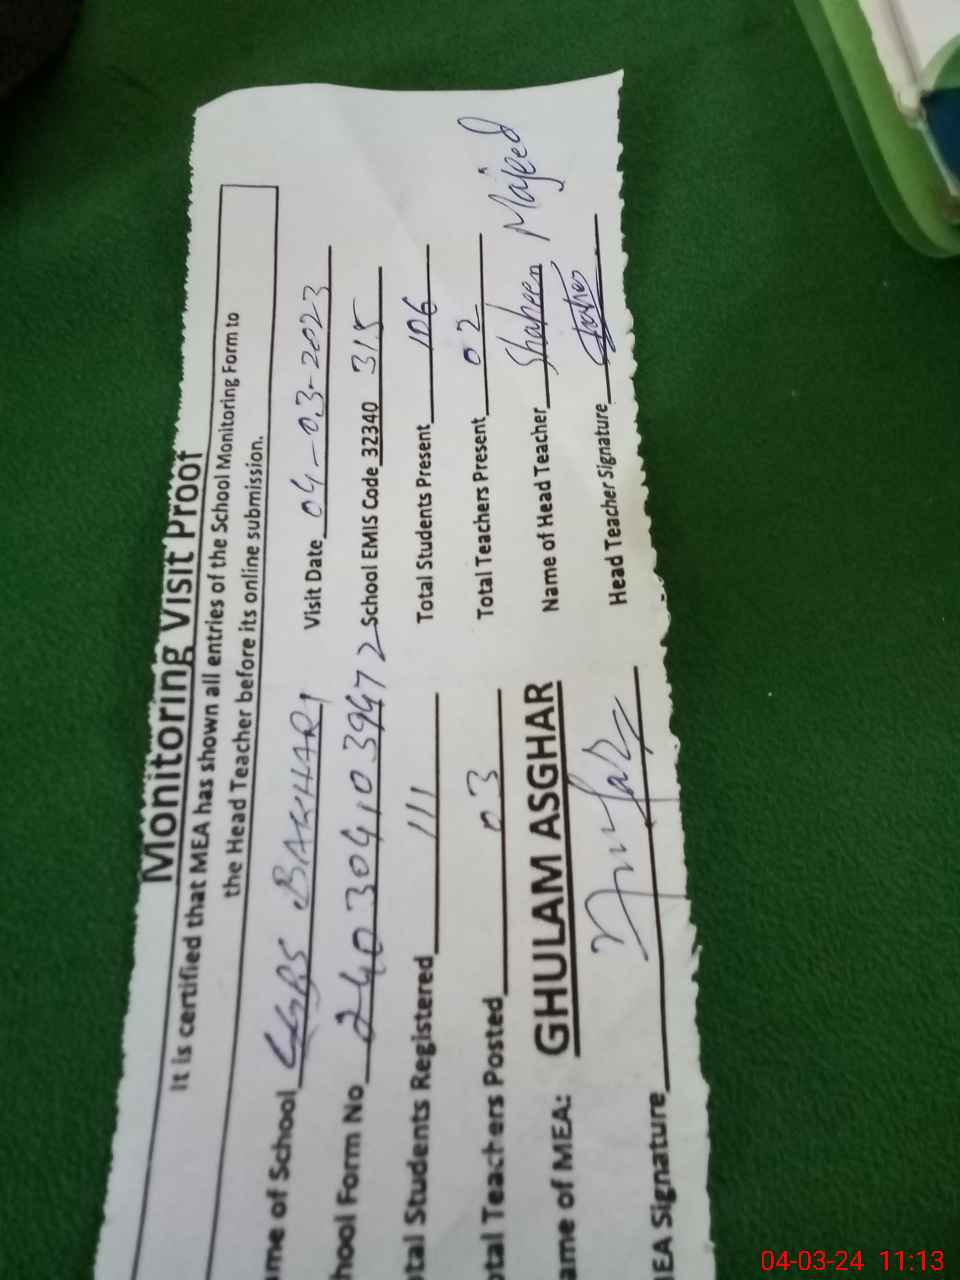 Monitoring Visit Proof
It is certified that MEA has shown all entries of the School Monitoring Form to
the Head Teacher before its online submission.
me of School GGPS BAKHARI Visit Date 04-03-2023
hool Form No 2403041039472 School EMIS Code 32340 315
otal Students Registered 111 Total Students Present 106
otal Teachers Posted 03 Total Teachers Present 02
ame of MEA: GHULAM ASGHAR Name of Head Teacher Shaheen Majeed
IEA Signature Head Teacher Signature
04-03-24 11:13